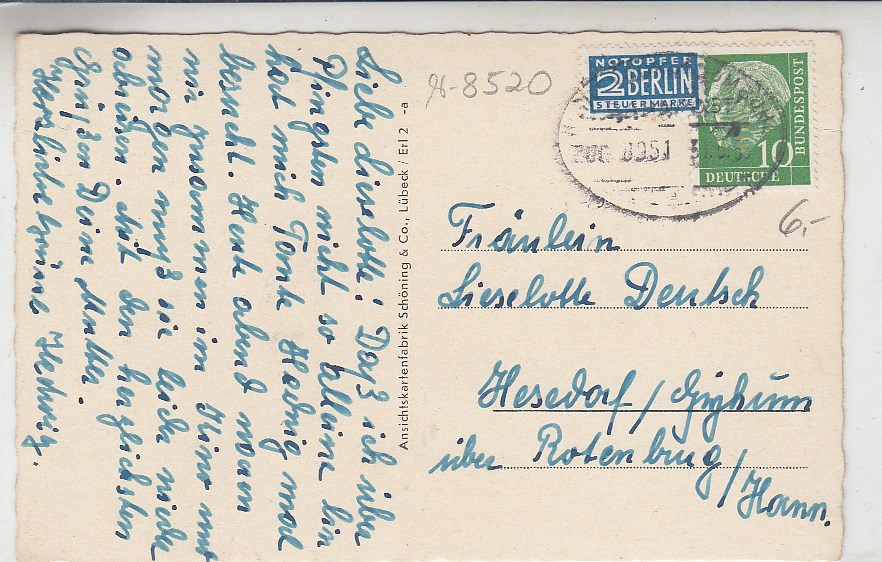 Liebe Lieselotte! Daß ich über
Pfingsten nicht so alleine bin
hat mich Tante Hedwig mal
besucht. Heute abend waren
wir zusammen im Kino und
morgen muß sie leider wieder
abreisen. Mit den herzlichsten
Grüßen Deine Mutter.
Herzliche Grüße Hedwig.
Ansichtskartenfabrik Schöning & Co., Lübeck / Erl 2 -a
96-8520
NOTOPFER
2 BERLIN
STEUERMARKE
10
DEUTSCHE
BUNDESPOST
ZUG 8351
6,-
Fräulein
Lieselotte Deutsch
Hesedorf / Gyhum
über Rotenburg / Hann.